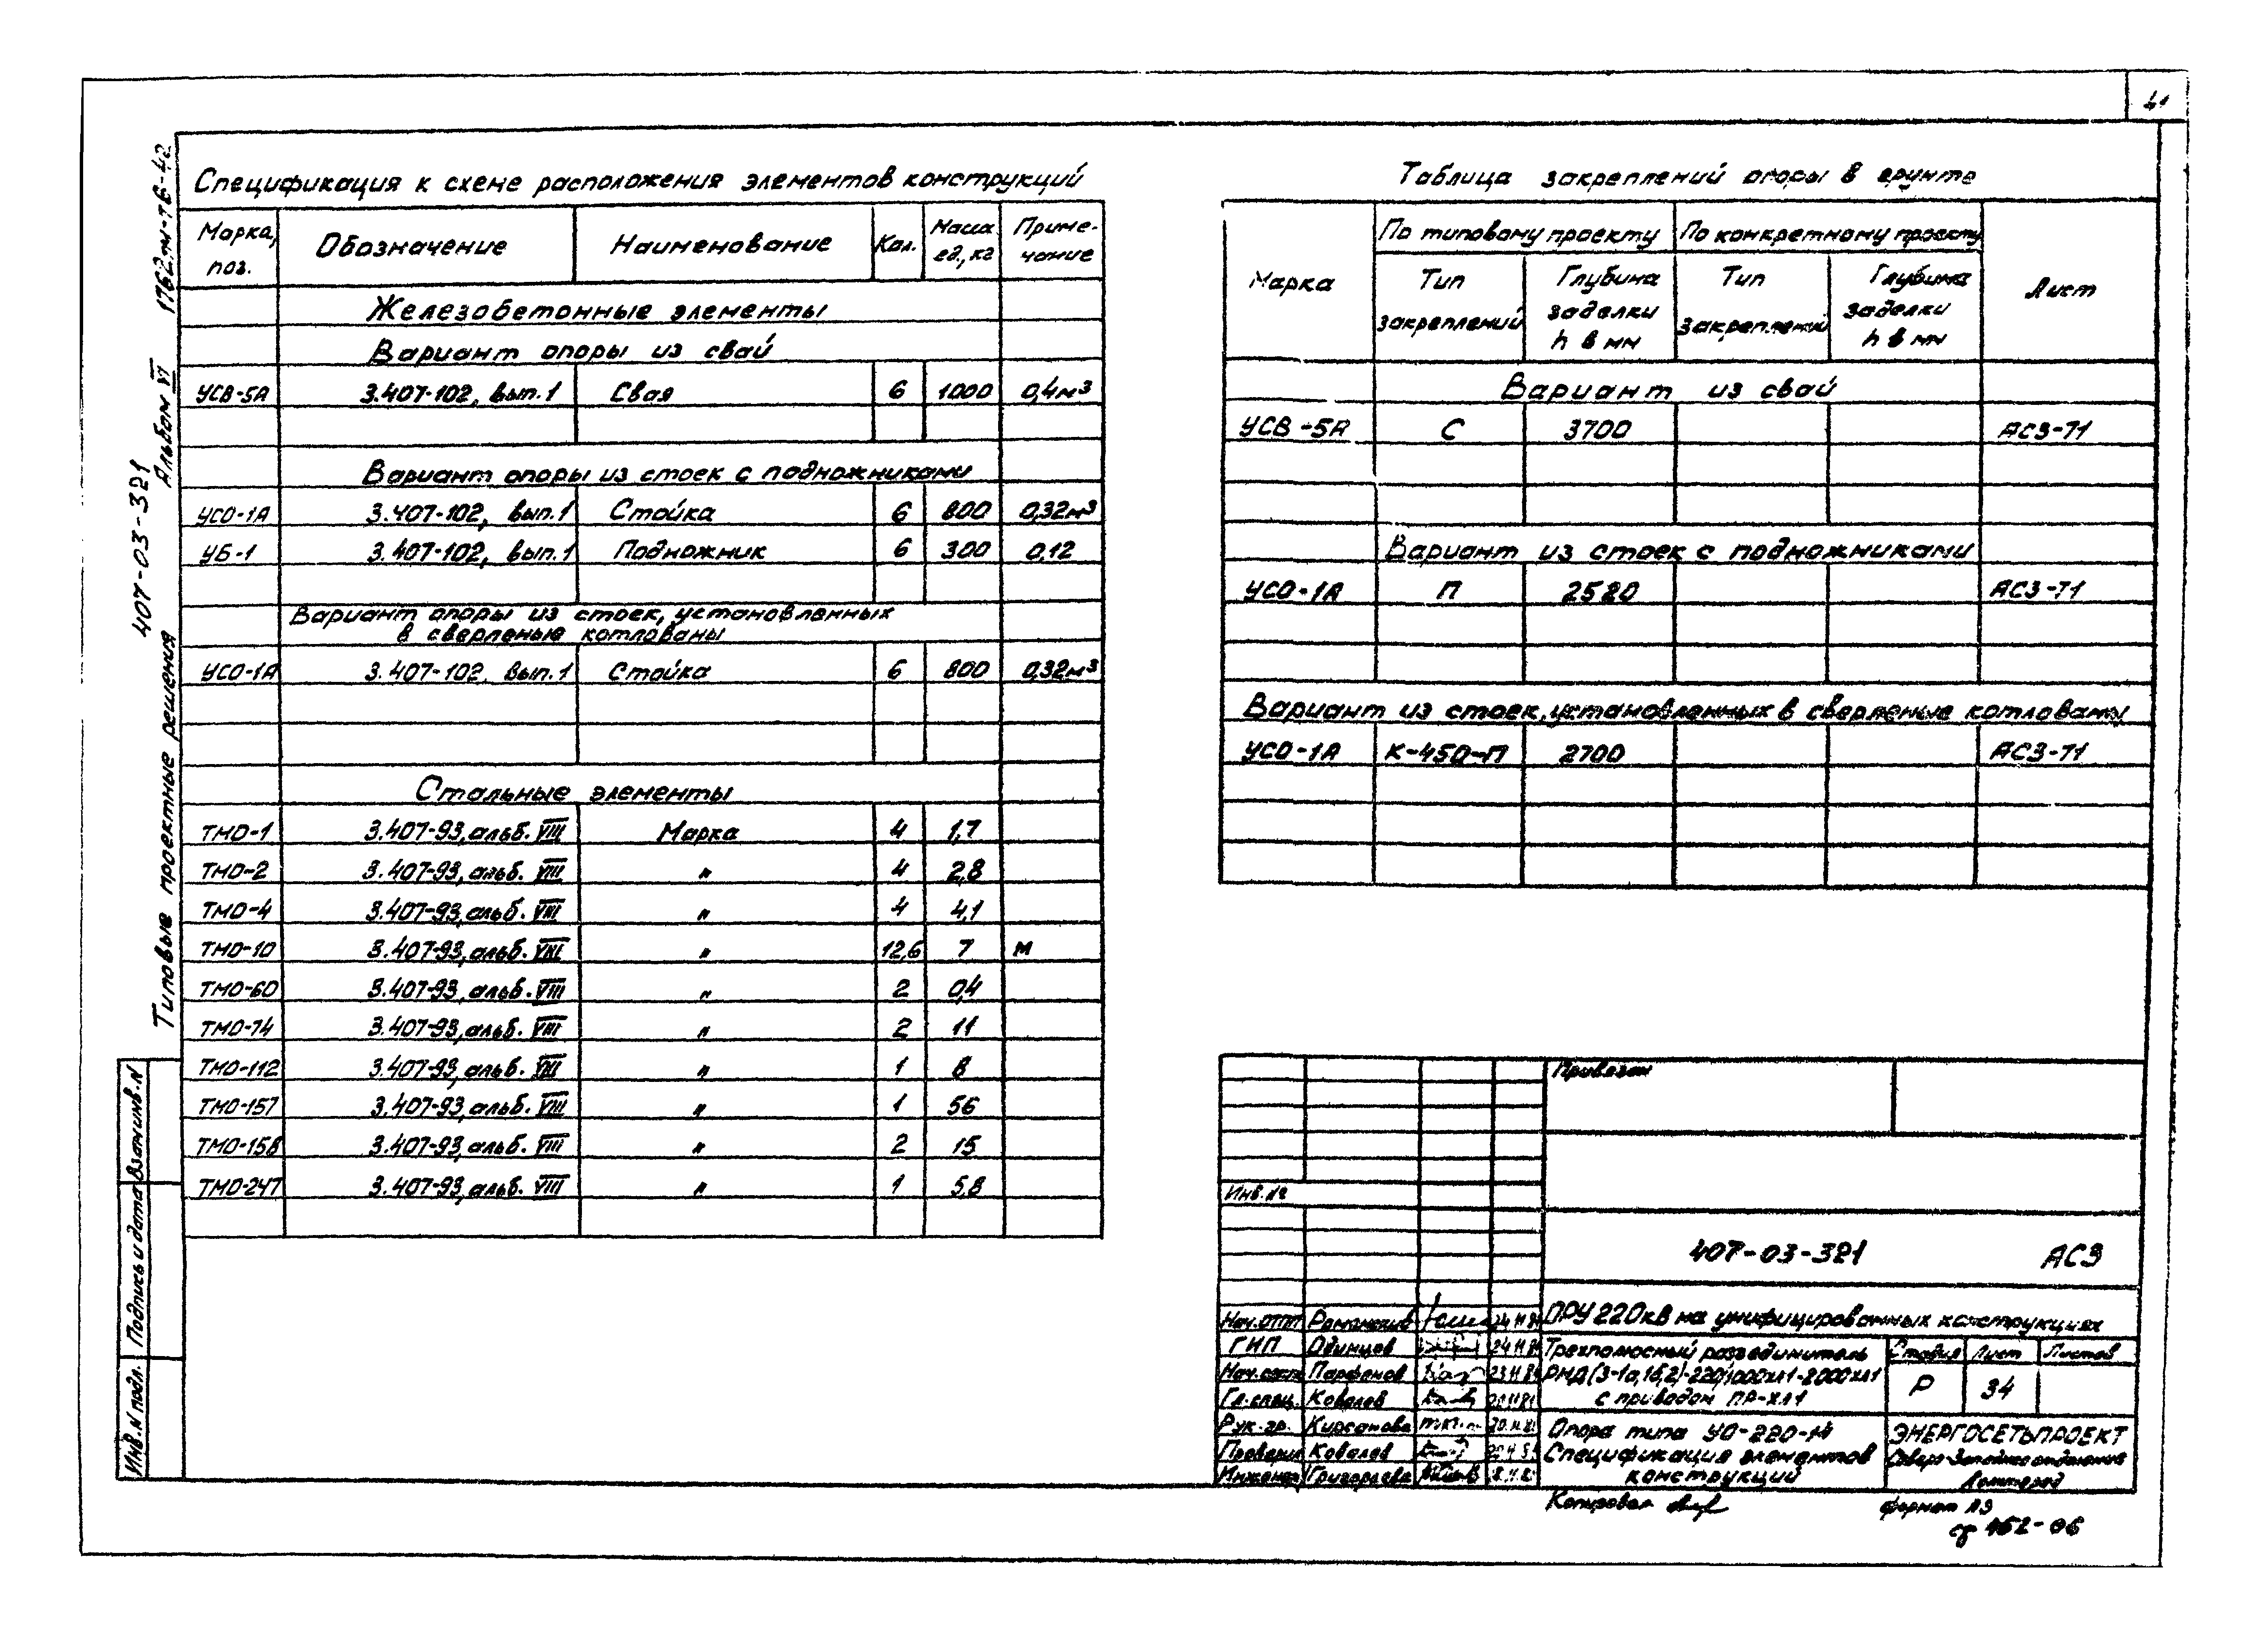 41
1762тм-т6-42
Альбом VI
407-03-321
Типовые проектные решения
Взам.инв.N
Подпись и дата
Инв.N подл.
Спецификация к схеме расположения элементов конструкций
Марка, поз. Обозначение Наименование Кол. Масса ед., кг Приме-чание
Железобетонные элементы
Вариант опоры из свай
УСВ-5А 3.407-102, вып.1 Свая 6 1000 0,4м³
Вариант опоры из стоек с подножниками
УСО-1А 3.407-102, вып.1 Стойка 6 800 0,32м³
УБ-1 3.407-102, вып.1 Подножник 6 300 0,12
Вариант опоры из стоек, установленных
в сверленые котлованы
УСО-1А 3.407-102, вып.1 Стойка 6 800 0,32м³
Стальные элементы
ТМО-1 3.407-93, альб. VIII Марка 4 1,7
ТМО-2 3.407-93, альб. VIII " 4 2,8
ТМО-4 3.407-93, альб. VIII " 4 4,1
ТМО-10 3.407-93, альб. VIII " 12,6 7 М
ТМО-60 3.407-93, альб. VIII " 2 0,4
ТМО-74 3.407-93, альб. VIII " 2 11
ТМО-112 3.407-93, альб. VIII " 1 8
ТМО-157 3.407-93, альб. VIII " 1 56
ТМО-158 3.407-93, альб. VIII " 2 15
ТМО-247 3.407-93, альб. VIII " 1 5,8
Таблица закреплений опоры в грунте
Марка По типовому проекту По конкретному проекту Лист
Тип закреплений Глубина заделки h в мм Тип закреплений Глубина заделки h в мм
Вариант из свай
УСВ-5А С 3700 АС3-71
Вариант из стоек с подножниками
УСО-1А П 2520 АС3-71
Вариант из стоек, установленных в сверленые котлованы
УСО-1А К-450-П 2700 АС3-71
Привязан
Инв.№
407-03-321 АС3
Нач.ОТП Романский 24.11.81
ГИП Одинцов 24.11.81
Парфенов 23.11.81
Гл.спец. Ковалев
Рук.гр. Кирсанова
Проверил Ковалев
Инженер Григорьева
ОРУ 220кВ на унифицированных конструкциях
Трехполюсный разъединитель
РНД(З-1а,1б,2)-220/1000хл1-2000хл1
с приводом ПР-хл1
Стадия Лист Листов
Р 34
Опора типа УО-220-14
Спецификация элементов
конструкций
ЭНЕРГОСЕТЬПРОЕКТ
Северо-Западное отделение
Ленинград
Копировал
формат А3